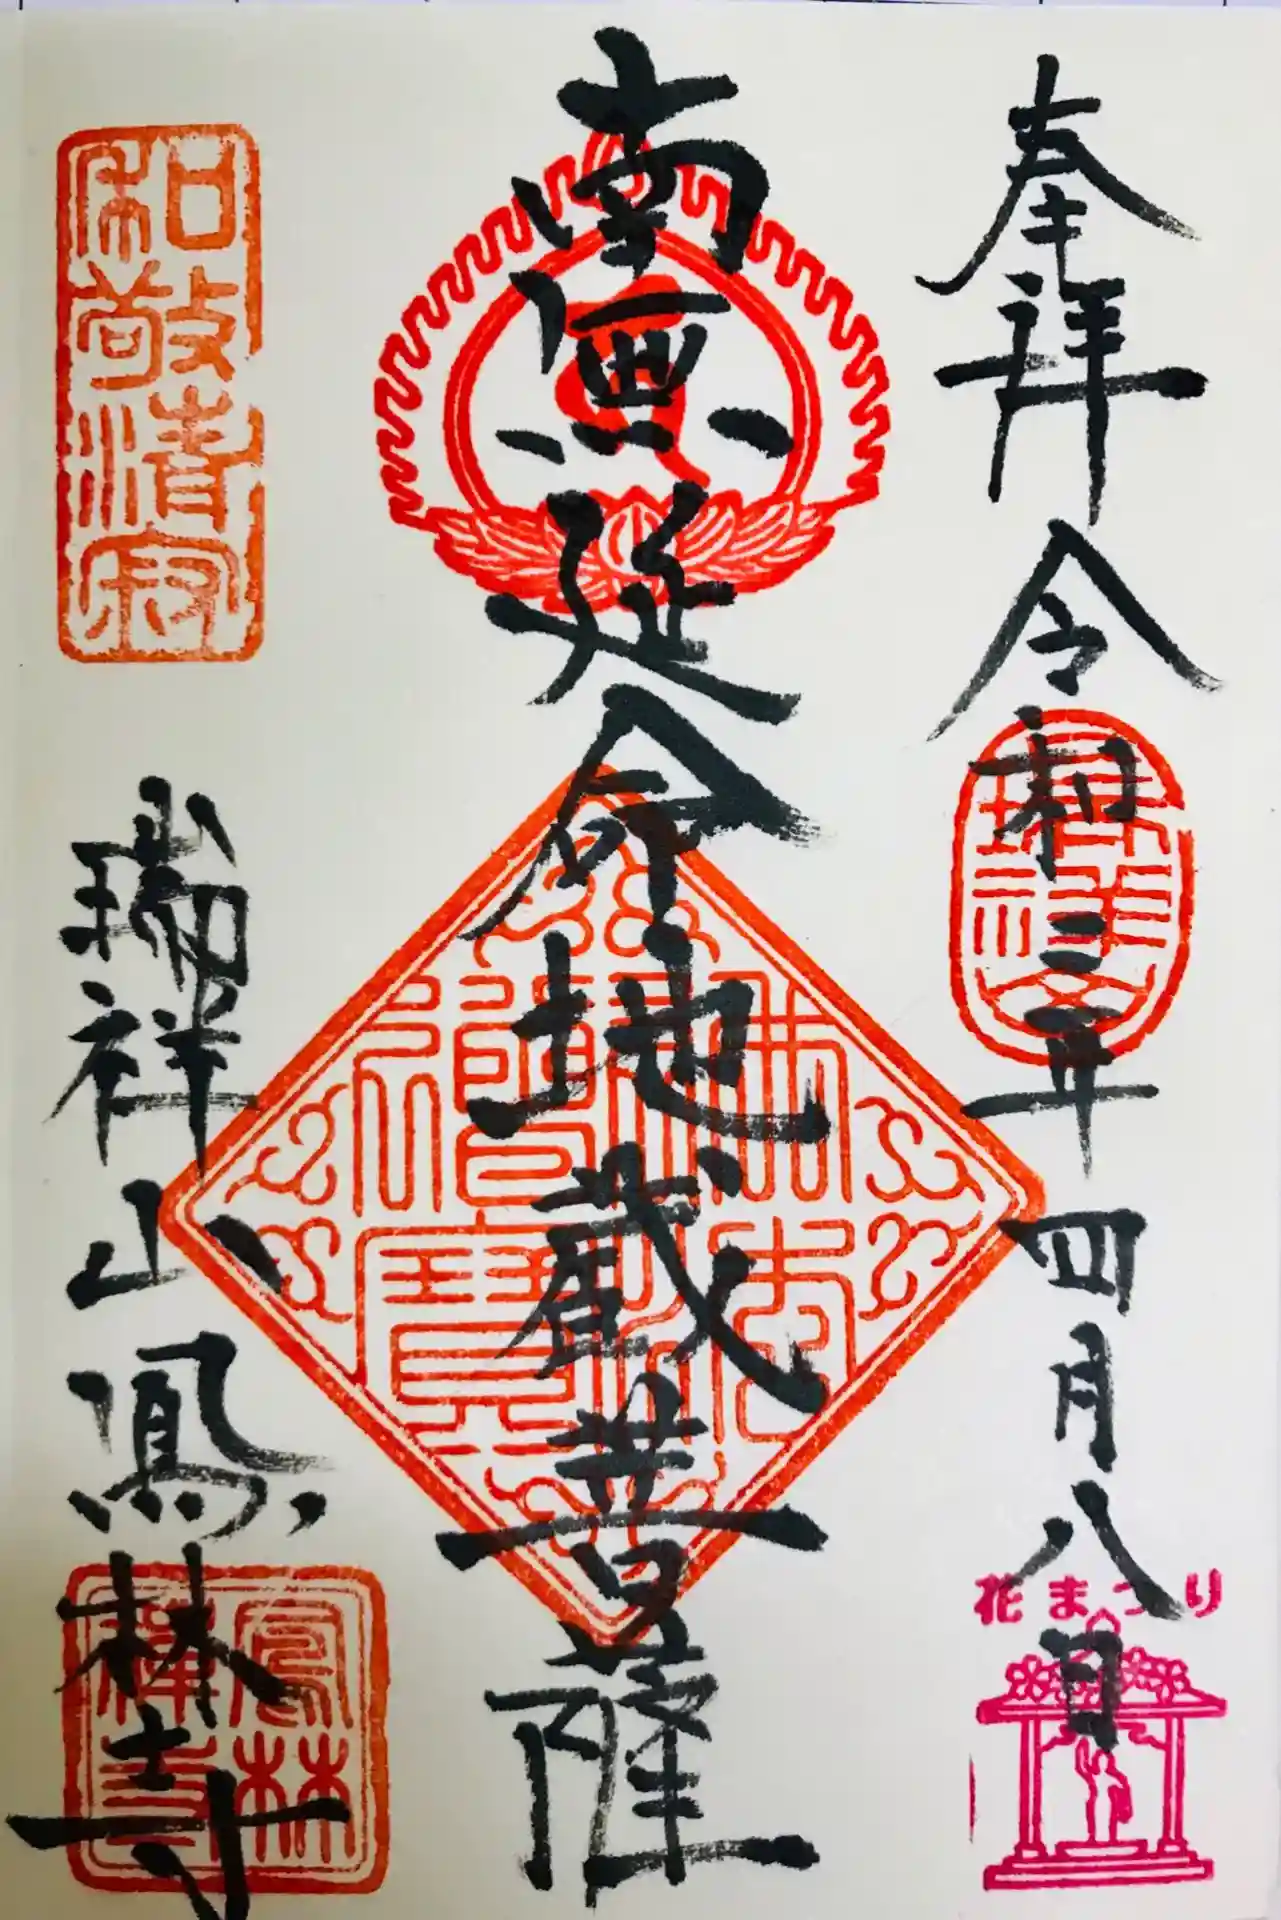 奉拝
令和三年四月八日
花まつり
南無延命地蔵菩薩
佛法僧寶
和敬清寂
瑞祥山
鳳林寺
鳳林禅寺